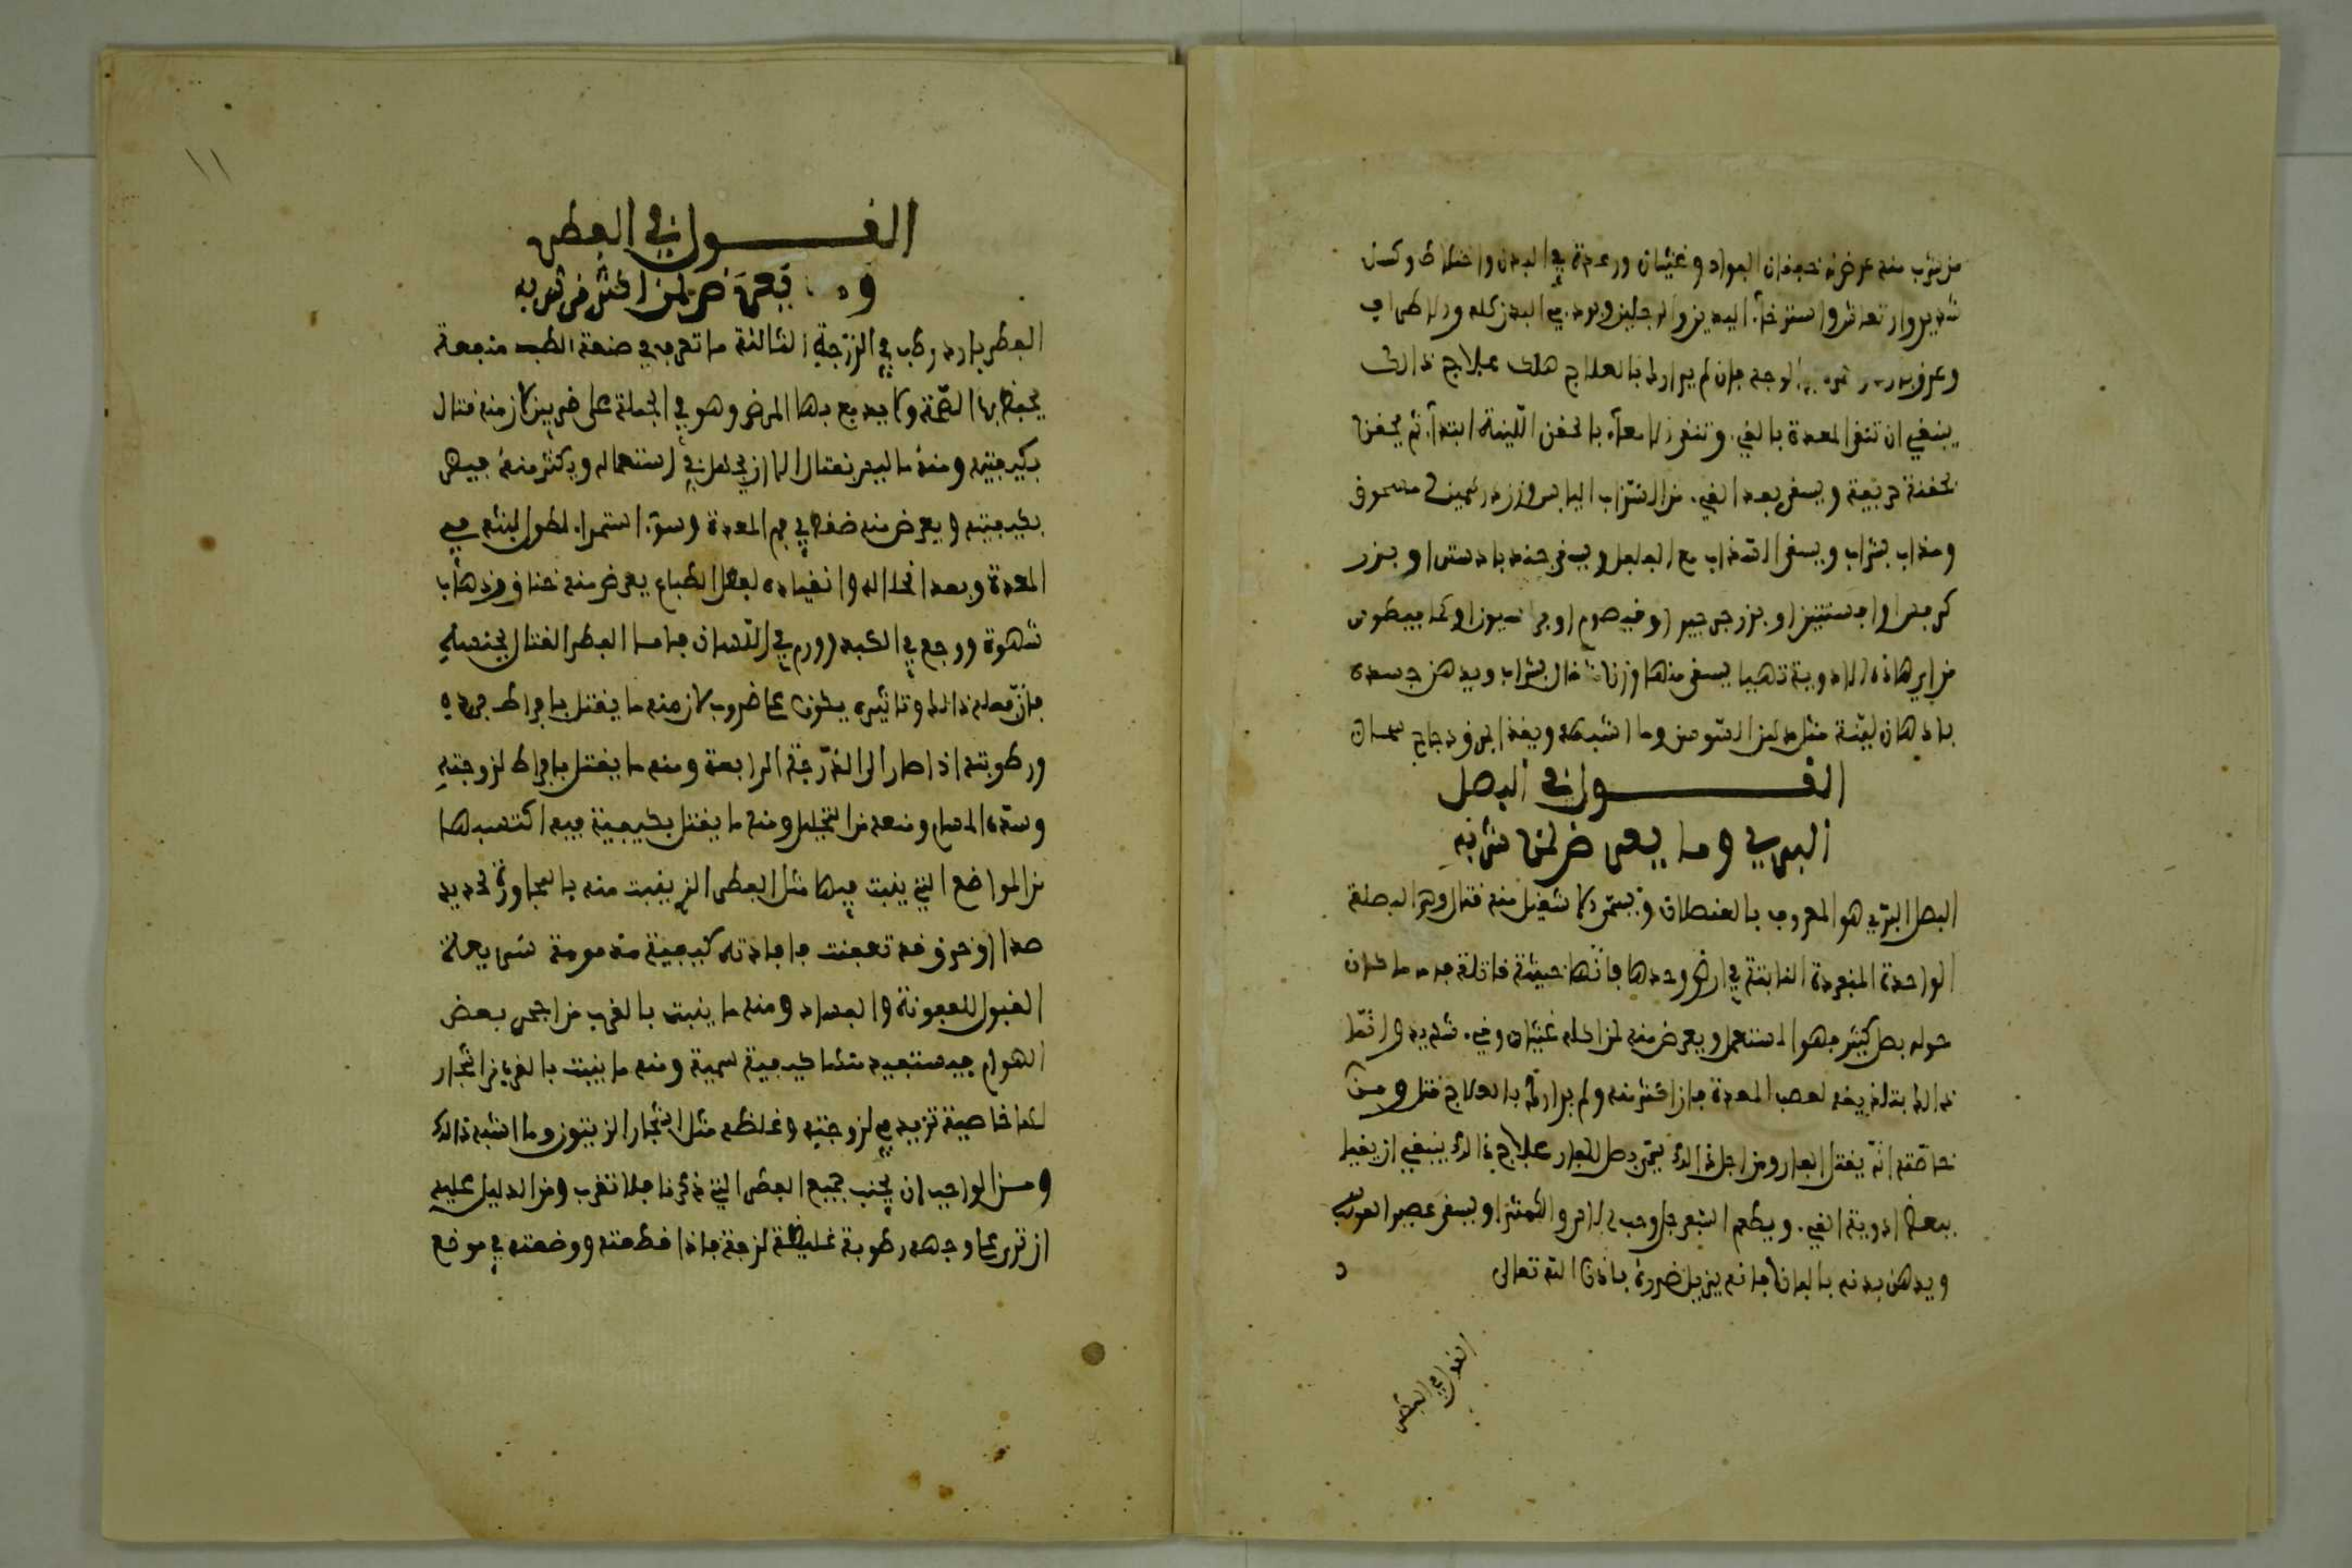 من شرب منه عرض له خفقان الفواد وغثيان ورعدة في البدن واختلاط وكسل
شديد وارتعاش واسترخآء اليدين والرجلين وبرد في البدن كله والاطراف
وعرق بارد الوجه فان لم يدارك بالعلاج هلك علاج ذالك
ينبغي ان تنقى المعدة بالقيء وتنقى الامعآء بالحقن اللينة ابتدآء ثم يحقن
بحقنة حريفة ويسقى بعد القيء من الشراب
وسذاب بشراب ويسقى السذاب مع الفلفل ويسقى جندبادستر او بزر
كرفس او افسنتين او بزر جرجير او قيصوم او فراسيون او كمافيطوس
من اي هاذه الادوية تهيا يسقى منها وزن مثقال بشراب ويدهن جسده
بادهان لينة مثل دهن السوسن وما اشبهه ويغذا بمرق دجاج سمان
القول في البصل
البري وما يعرض لمن شربه
البصل البري هو المعروف بالعنصلان ويسمى الاشقيل منه قتال وهو البصلة
الواحدة المنفردة النابتة في ارض وحدها فانها خبيثة قاتلة فاما ما كان
حوله بصل كثير فهو المستعمل ويعرض منه لمن اكله غثيان وقيء شديد وانما
ذالك بتلذيغه لعصب المعدة فان اكثر منه ولم يدارك بالعلاج قتل ومن
خاصته انه يقتل الفار ومن اجل ذالك يسمى بصل الفار علاج ذالك ينبغي ان يقيا
ببعض ادوية القيء ويطعم السفرجل وحب الاس والكمثرا ويسقى عصير
ويدهن بدنه بالبان فانه يزيل ضرره باذن الله تعالى
القول في الفطر
١١
القول في الفطر
وما يعرض لمن اكثر من شربه
الفطر بارد رطب في الدرجة الثالثة ما تعرف في صنعة الطب منفعة
يحفظ بها الصحة ولا يدفع بها المرض وهو في الجملة على ضربين لان منه قتال
بكيفيته ومنه ما ليس بقتال الا ان يحمل في استعماله ويكثر منه فيضر
بكيفيته ويعرض منه ضغط في فم المعدة وسوء استمراء لطول لبثه في
المعدة وبعد انحلاله وانقياده لفعل الطباع يعرض منه خناق وذهاب
شهوة ووجع في الكبد وورم في اللسان فاما الفطر القتال بجنسه
فان فعله ذالك وتاثيره يكون على ضروب لان منه ما يقتل بافراط برده
ورطوبته اذا صار الى الدرجة الرابعة ومنه ما يقتل بافراط لزوجته
وسده المسام ومنعه من التحليل ومنه ما يقتل بكيفية فيه اكتسبها
من المواضع التي ينبت فيها مثل الفطر الذي ينبت منه بالمجاورة لحديد
صدا او خرق قد تعفنت فافادته كيفية مذمومة سريعة
القبول للعفونة والفساد ومنه ما ينبت بالقرب من اجحر بعض
الهوام فيستفيد منها كيفية سمية ومنه ما ينبت بالقرب من اشجار
لها خاصية تزيد في لزوجته وغلظه مثل اشجار الزيتون وما اشبه ذالك
ومن الواجب ان يجنب جميع الفطر التي ذكرنا فلا تقرب ومن الدليل عليه
ان ترى على وجهه رطوبة غليظة لزجة فاذا قطعته ووضعته في موضع